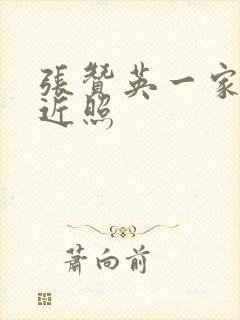 張贊英一家
近照
蕭向前